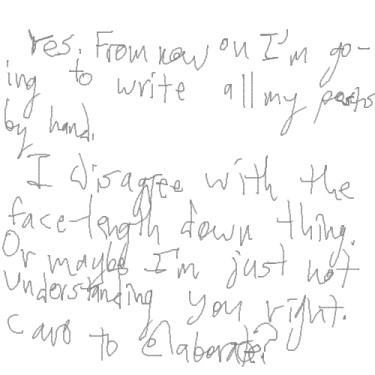 Yes. From now on I'm go-
ing to write all my posts
by hand.
I disagree with the
face-length down thing.
Or maybe I'm just not
understanding you right.
Care to elaborate?